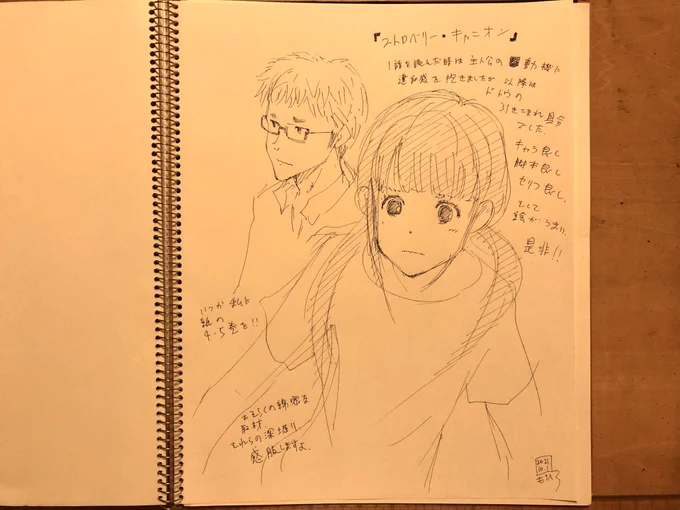 『ストロベリー・キャニオン』
1話を読んだ時は主人公の動機に
違和感を抱きましたが以降は
ドトウの
引きこまれ具合
でした
キャラ良し
脚本良し
セリフ良し、
そして
絵がうまい、
是非!!
いつか私に
紙の
4・5巻を!!
おそらくの綿密な
取材、
それらの深堀り
感服しますよ、
2021
10.1